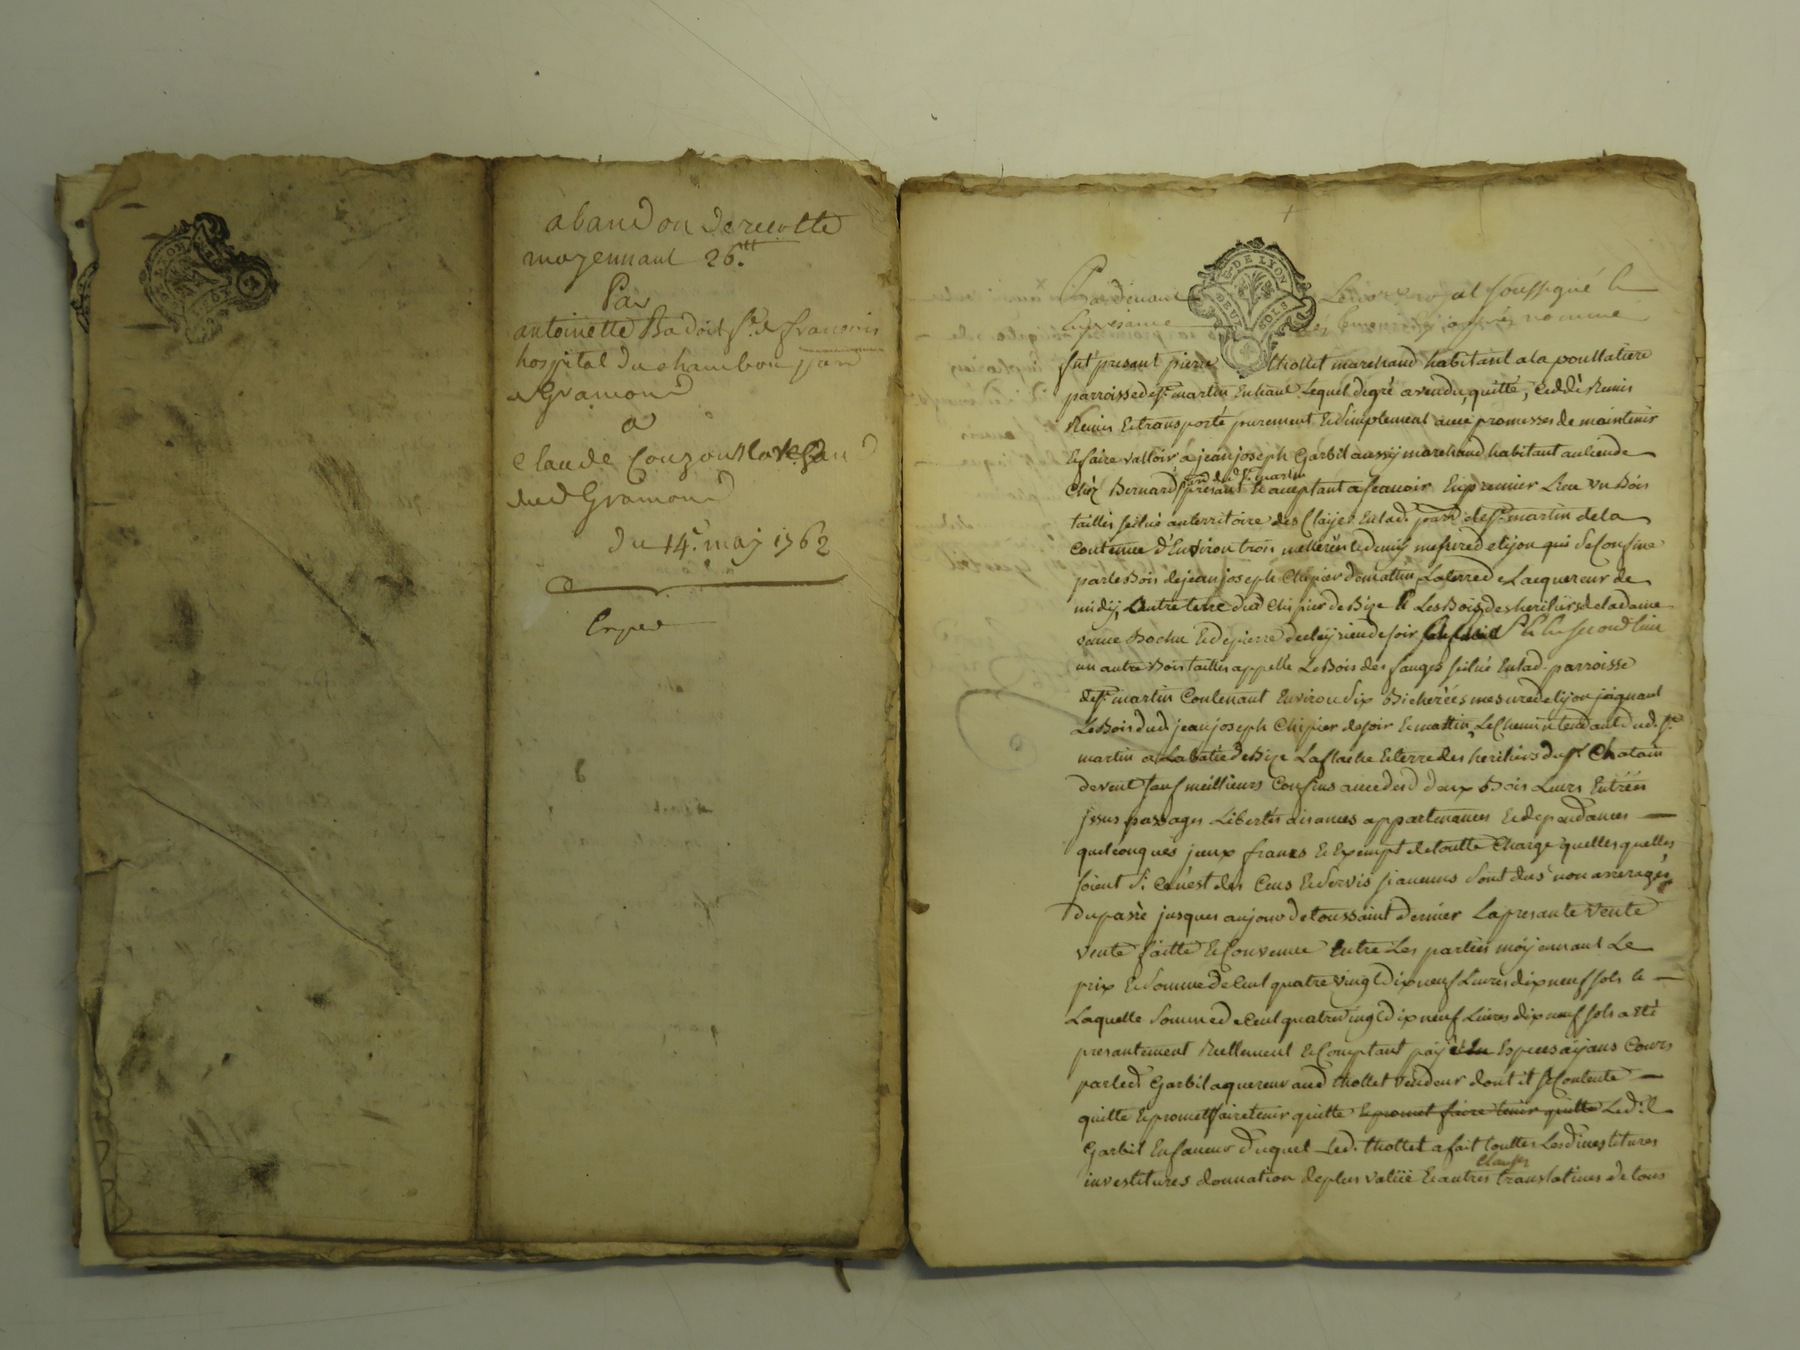 abandon de recolte
moyennant 26.tt
Par
antoinette Badoit f.e de francois
hospital du chambon par
a Gramond
a
Claude Couzon
dud Gramond
du 14.e may 1762
Exped
G. DE LYON
DEUX SOLS
Pardevant Le no.re royal soussigné &
En presance des temoins cy apres nommé
fut present pierre thollet marchand habitant a la poullatiere
parroisse de s.t martin En haut Lequel de gré a vendu, quitté, Ceddé Remis
Remis Et transporté purement Et Simplement avec promesses de maintenir
Et faire valloir a jean joseph Garbil aussy marchand habitant au lieu de
Chéz Bernard parr. dud s.t martin present & aceptant a scavoir En premier Lieu un Bois
taillis scitué au territoire des Clayes En lad. parr. de s.t martin de la
contenue d'Environ trois metterëe & demÿ mesure de lyon qui Se Confine
par le Bois de jean joseph Chipier de mattin La terre de L'acquereur de
midÿ, L'autre terre dud Chipier de Bize & Les Bois des heritiers de la dame
veuve Bochu Et de pierre de soir & En Second lieu
un autre Bois taillis appellé Le Bois des fanges scitué En lad. parroisse
de s.t martin Contenant Environ dix Bicherées mesure de lyon joignant
Le Bois dud jean joseph Chipier de soir & mattin, Le Chemin tendant dud. s.t
martin a La batie de Bize La flache Et terre des heritiers du s.r Chatain
de vent Sauf meillieurs Confins avec desd deux Bois Leurs Entrées
jssues passages Libertés aisances appartenances Et dependances
quelconques jceux francs & Exempt de toutte Charge quelles quelles
soient Si Ce n'est des Cens Et Servis si aucuns Sont dus non arreragés
du passé jusques au jour de toussaint dernier La presante Vente
vente faitte & Convenue Entre Les parties moÿennant Le
prix Et Somme de Cent quatre vingt dix neuf Livres dix neuf sols &
Laquelle Somme de Cent quatre vingt dix neuf Livres dix neuf sols a Eté
presantement Reellement & Comptant payé En Especes aÿans Cours
par led Garbil aquereur aud thollet vendeur dont il se Contente
quitte & promet faire tenir quitte & promet faire tenir quitte Led.
Garbil En faveur duquel Led. thollet a fait touttes Les d'investitures
investitures donnation de plus valüe Et autres clauses translatives de tous